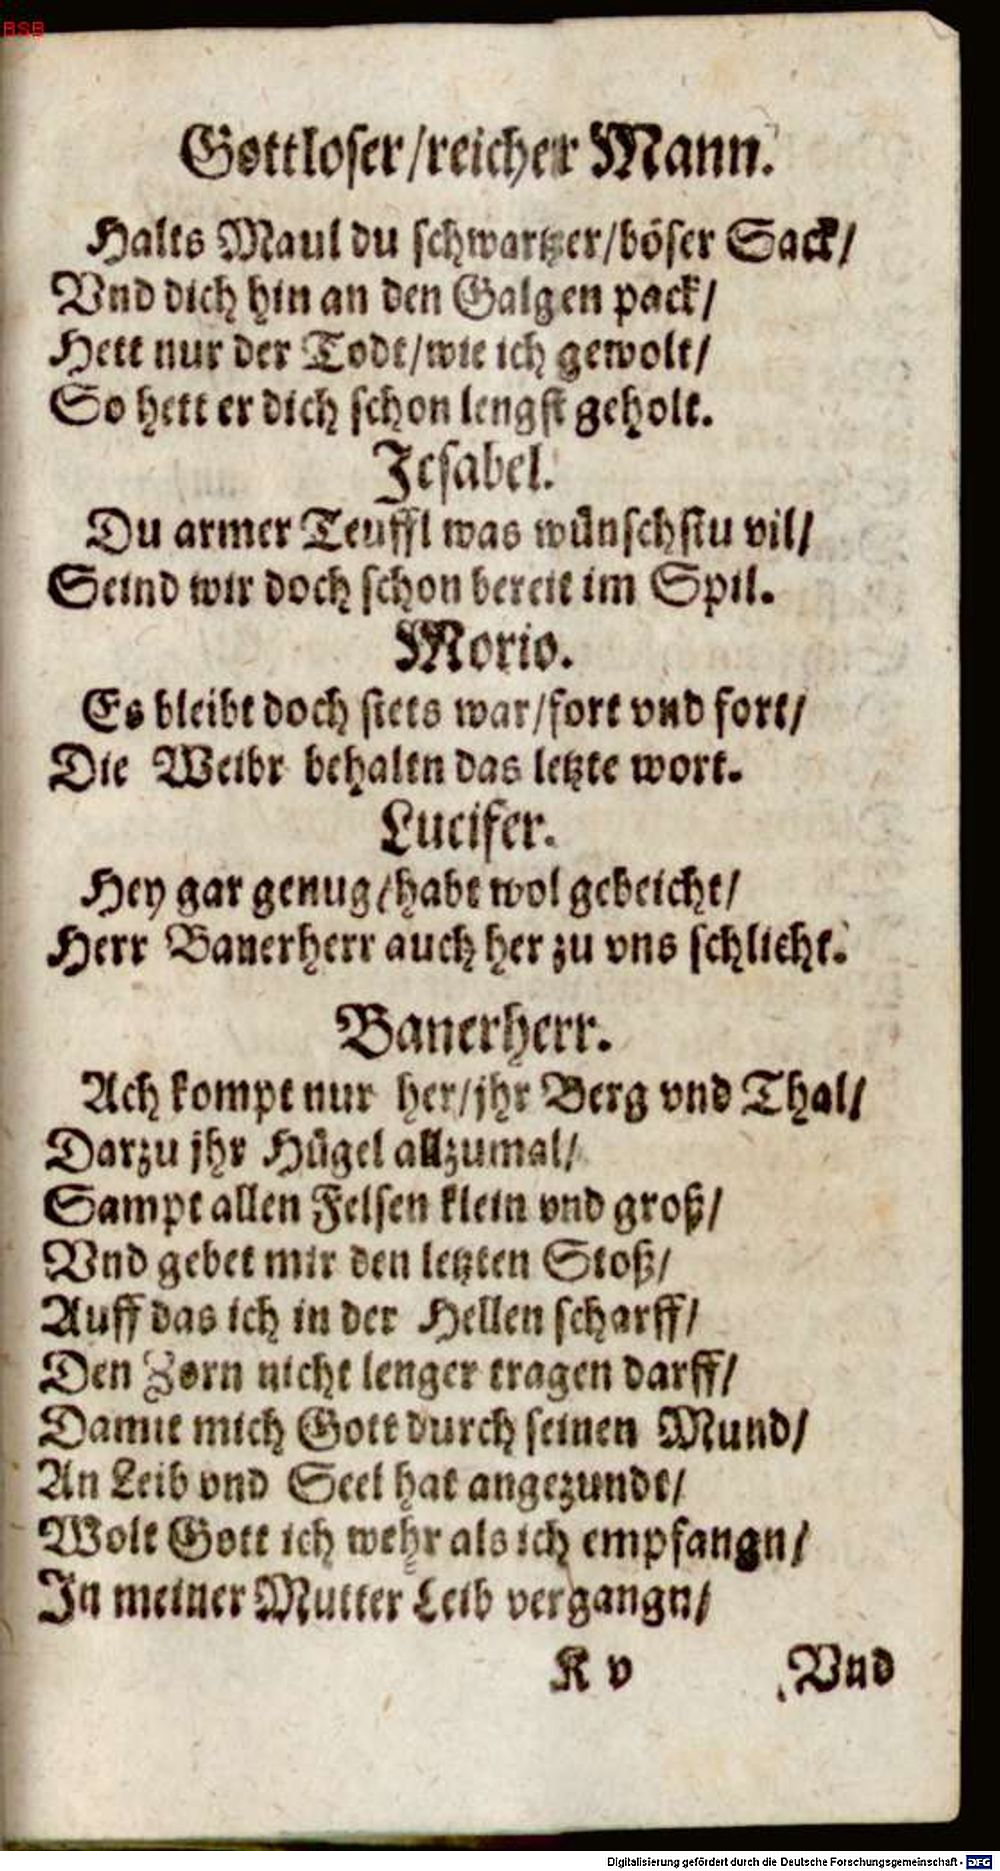 BSB
Gottloser/reicher Mann.
Halts Maul du schwartzer/böser Sack/
Vnd dich hin an den Galgen pack/
Hett nur der Todt/wie ich gewolt/
So hett er dich schon lengst geholt.
Jesabel.
Du armer Teuffl was wünschstu vil/
Seind wir doch schon bereit im Spil.
Morio.
Es bleibt doch stets war/fort vnd fort/
Die Weibr behaltn das letzte wort.
Lucifer.
Hey gar genug/habt wol gebeicht/
Herr Banerherr auch her zu vns schlicht.
Banerherr.
Ach kompt nur her/jhr Berg vnd Thal/
Darzu jhr Hügel allzumal/
Sampt allen Felsen klein vnd groß/
Vnd gebet mir den letzten Stoß/
Auff das ich in der Hellen scharff/
Den Zorn nicht lenger tragen darff/
Damit mich Gott durch seinen Mund/
An Leib vnd Seel hat angezundt/
Wolt Gott ich wehr als ich empfangn/
In meiner Mutter Leib vergangn/
K v Vnd
Digitalisierung gefördert durch die Deutsche Forschungsgemeinschaft - DFG